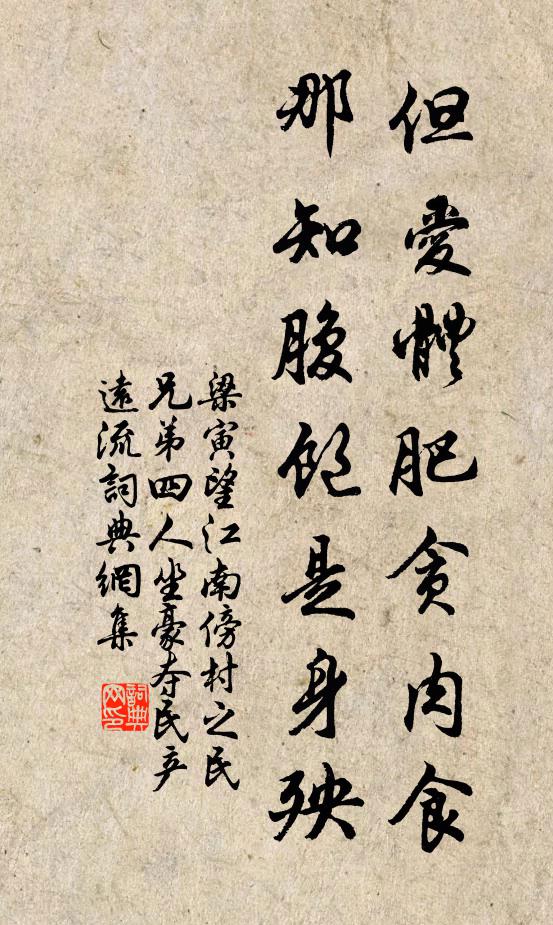 但愛體肥貪肉食
那知腹飽是身殃
梁寅望江南傍村之民
兄弟四人坐豪夺民产
遠流詞典網集
詞典网印